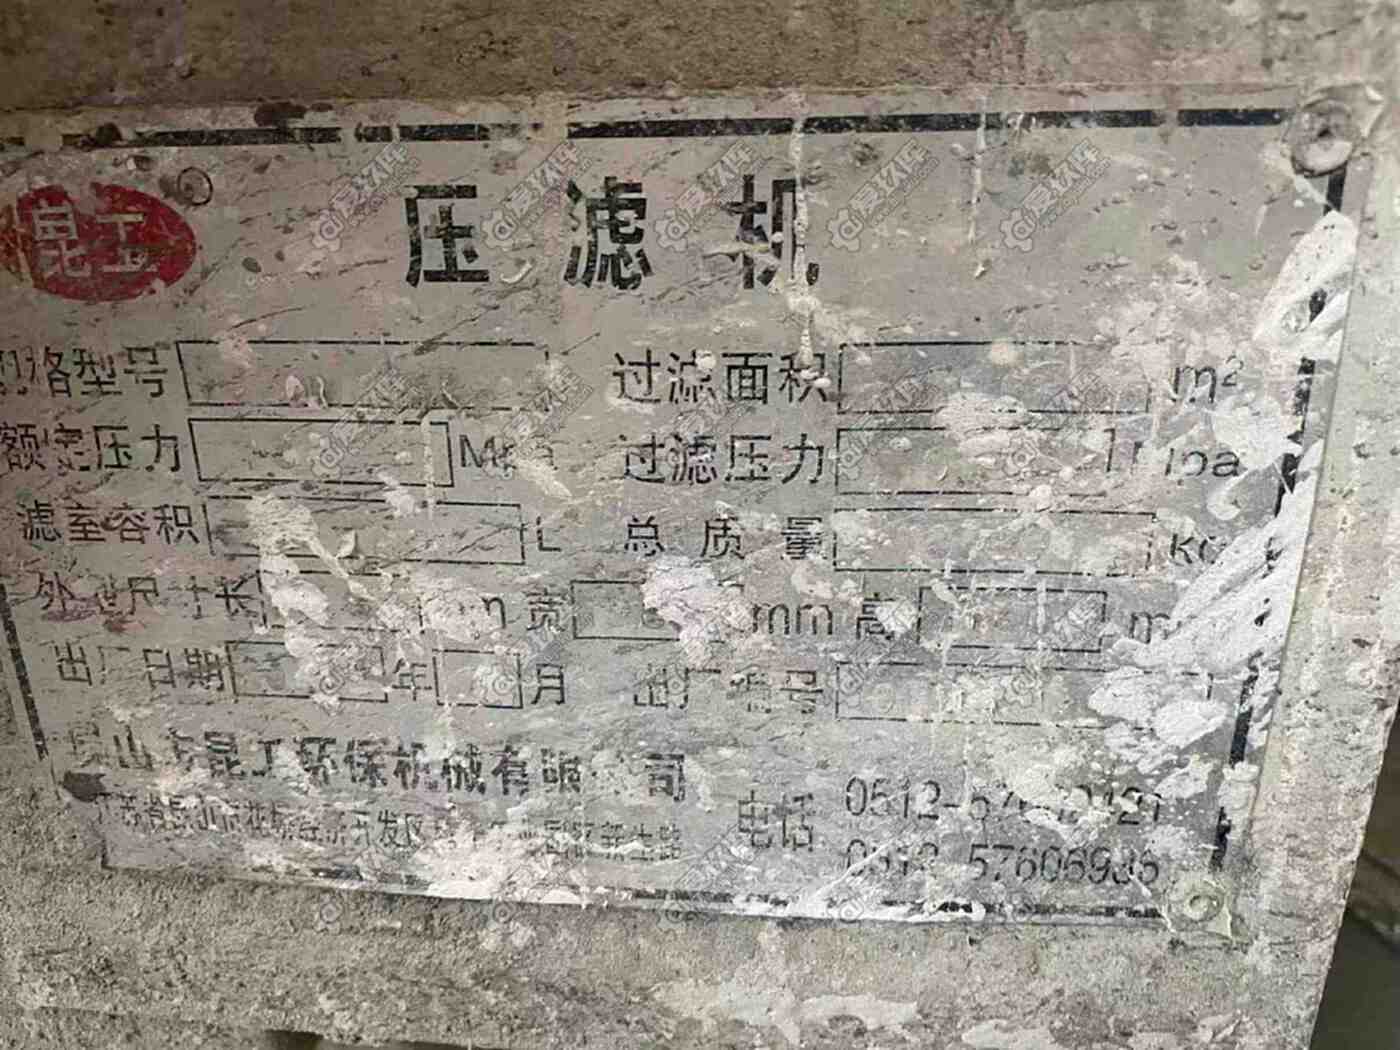 昆工 ®
压滤机
规格型号 过滤面积 m²
额定压力 Mpa 过滤压力 Mpa
滤室容积 L 总质量 kg
外型尺寸长 mm 宽 mm 高
出厂日期 年 月 出厂编号
昆山市昆工环保机械有限公司
开发区 电话 0512-57
0512-576069